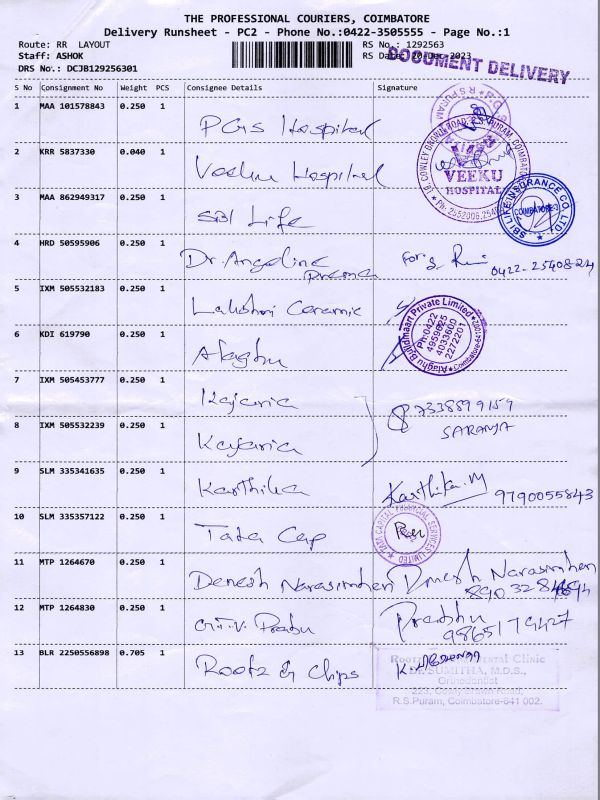 THE PROFESSIONAL COURIERS, COIMBATORE
Delivery Runsheet - PC2 - Phone No.:0422-3505555 - Page No.:1
Route: RR LAYOUT
RS No.: 1292563
Staff: ASHOK
RS Date: 20-Dec-2023
DOCUMENT DELIVERY
DRS No.: DCJB129256301
S No Consignment No Weight PCS Consignee Details Signature
1 MAA 101578843 0.250 1
PGS Hospital
2 KRR 5837330 0.040 1
Veeku Hospital
VEEKU
HOSPITAL
3 MAA 862949317 0.250 1
SBI Life
SBI LIFE INSURANCE CO. LTD.
COIMBATORE
4 HRD 50595906 0.250 1
Dr. Angeline
Prema
for 0422-2540824
5 IXM 505532183 0.250 1
Lakshmi Ceramic
6 KDI 619790 0.250 1
Alaghu
Alaghu Buildmaart Private Limited
Ph:0422
4959625
4033600
2272201
7 IXM 505453777 0.250 1
Kajaria
7338899159
SARANYA
8 IXM 505532239 0.250 1
Kajaria
9 SLM 335341635 0.250 1
Karthika
Karthika.M
9790055843
10 SLM 335357122 0.250 1
Tata Cap
TATA CAPITAL FINANCIAL SERVICES LIMITED
11 MTP 1264670 0.250 1
Denesh Narasimhen
Dinesh Narasimhen
12 MTP 1264830 0.250 1
G.T.V. Prabu
Prabhu
9865179427
13 BLR 2250556898 0.705 1
Roots & Clips
Dental Clinic
DR. SUMITHA, M.D.S.,
Orthodontist
R.S.Puram, Coimbatore-641 002.